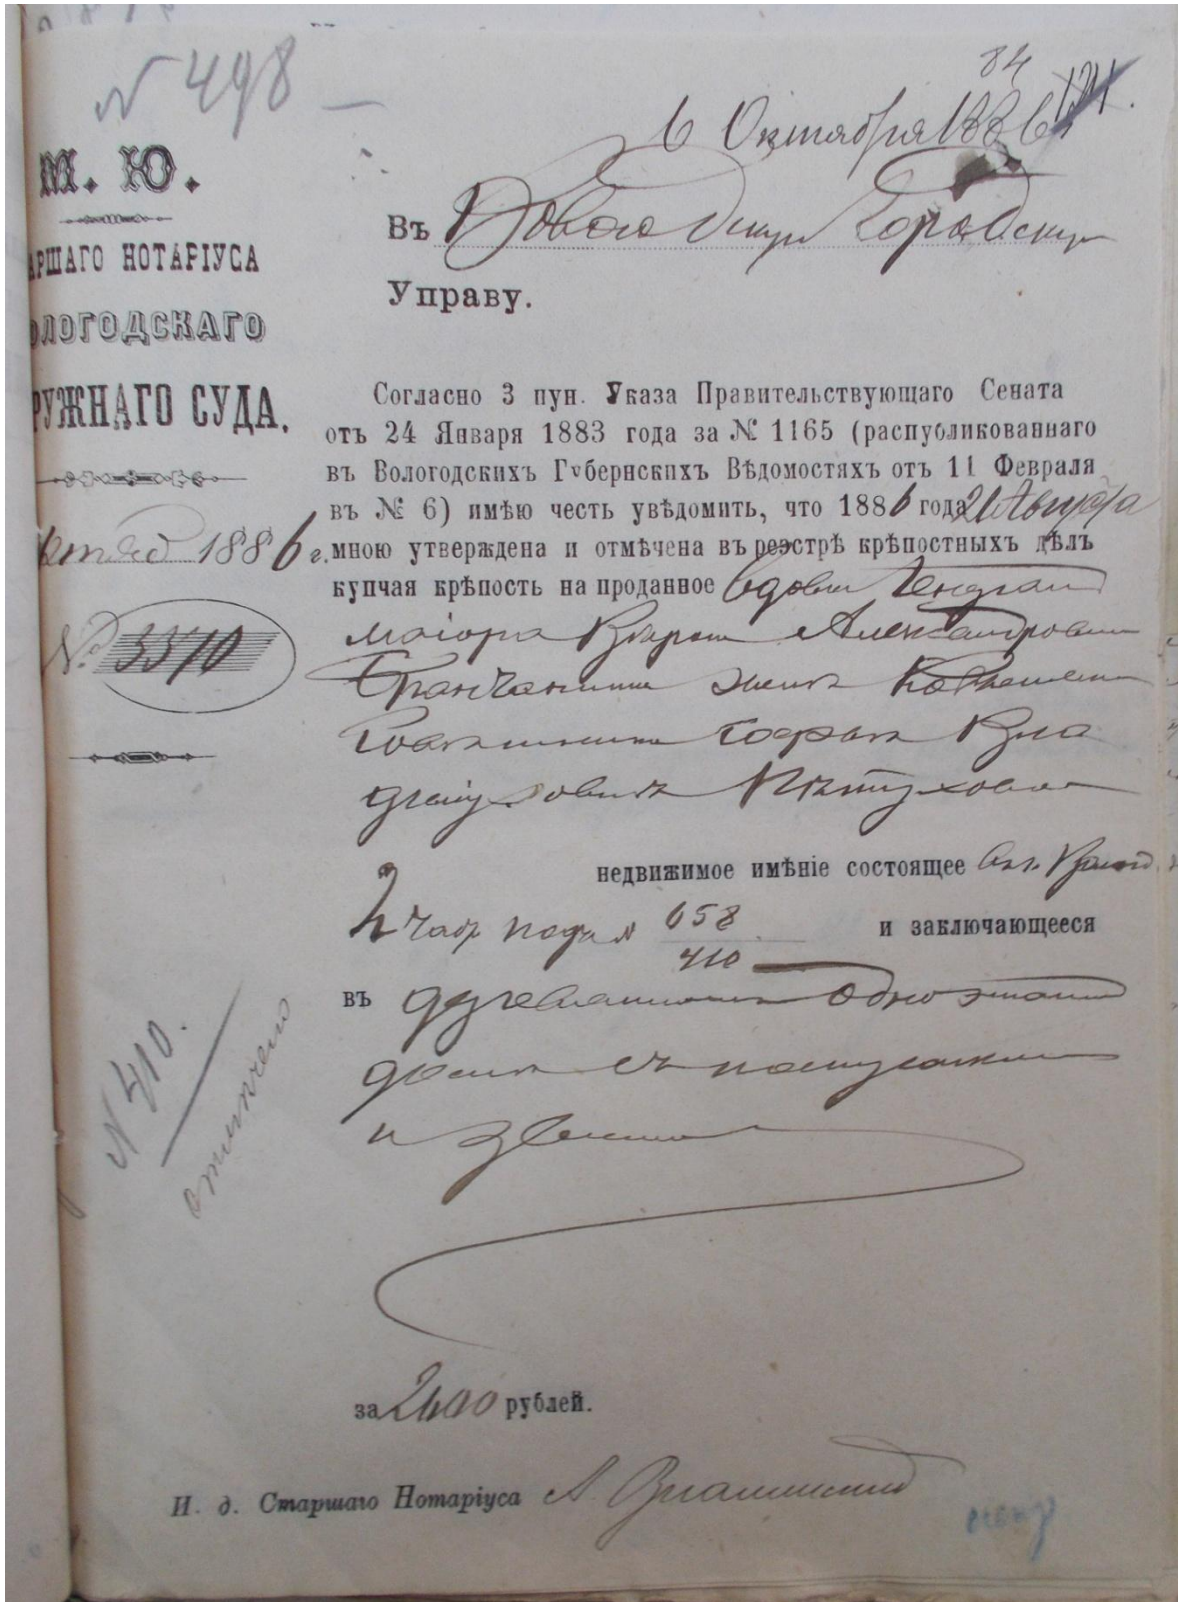 N 498
84
6 Октября 1886
М. Ю.
АРШАГО НОТАРІУСА
ОЛОГОДСКАГО
РУЖНАГО СУДА.
1886 г.
№ 3370
Въ Вологодскую Городскую
Управу.
Согласно 3 пун. Указа Правительствующаго Сената
отъ 24 Января 1883 года за № 1165 (распубликованнаго
въ Вологодскихъ Губернскихъ Вѣдомостяхъ отъ 11 Февраля
въ № 6) имѣю честь увѣдомить, что 1886 года 21 Августа
мною утверждена и отмѣчена въ реэстрѣ крѣпостныхъ дѣлъ
купчая крѣпость на проданное Вдовы Генерал
маіора Александровны
женѣ
Софьѣ Вла
Пѣтуховой
недвижимое имѣніе состоящее
2 части подъ N 658
410
и заключающееся
въ деревянномъ одноэтажн
домѣ съ постройками
и землею
N 410.
отмѣчено
за 2400 рублей.
И. д. Старшаго Нотаріуса А.